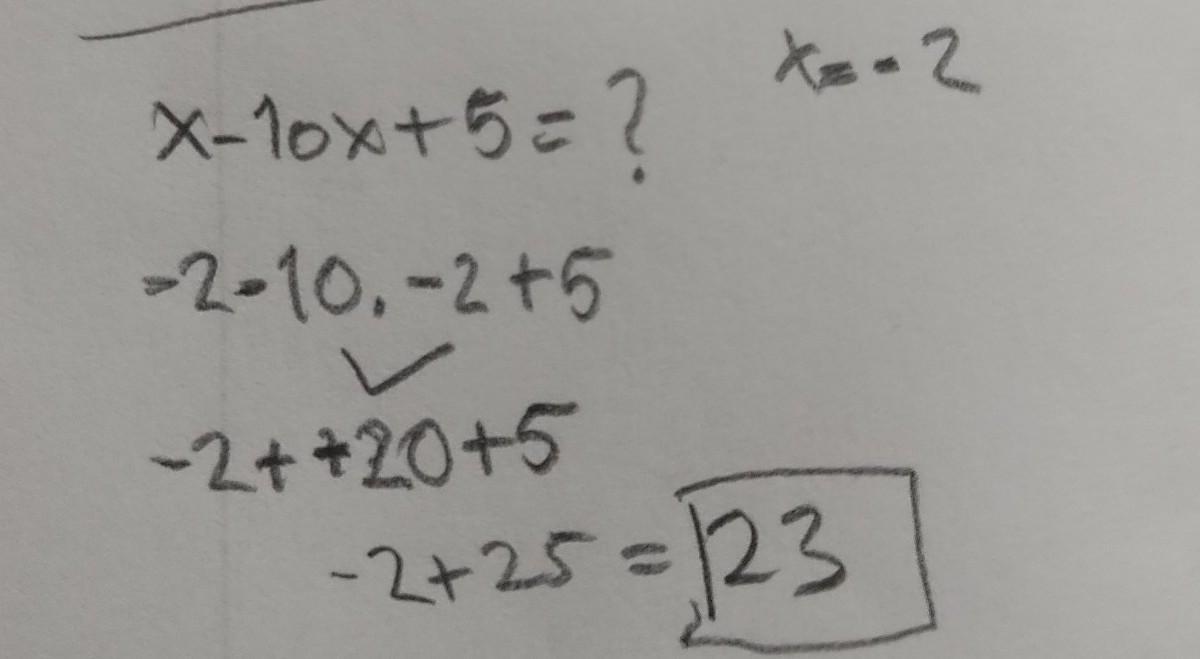 x=-2
x-10x+5=?
-2-10.-2+5
-2++20+5
-2+25=23